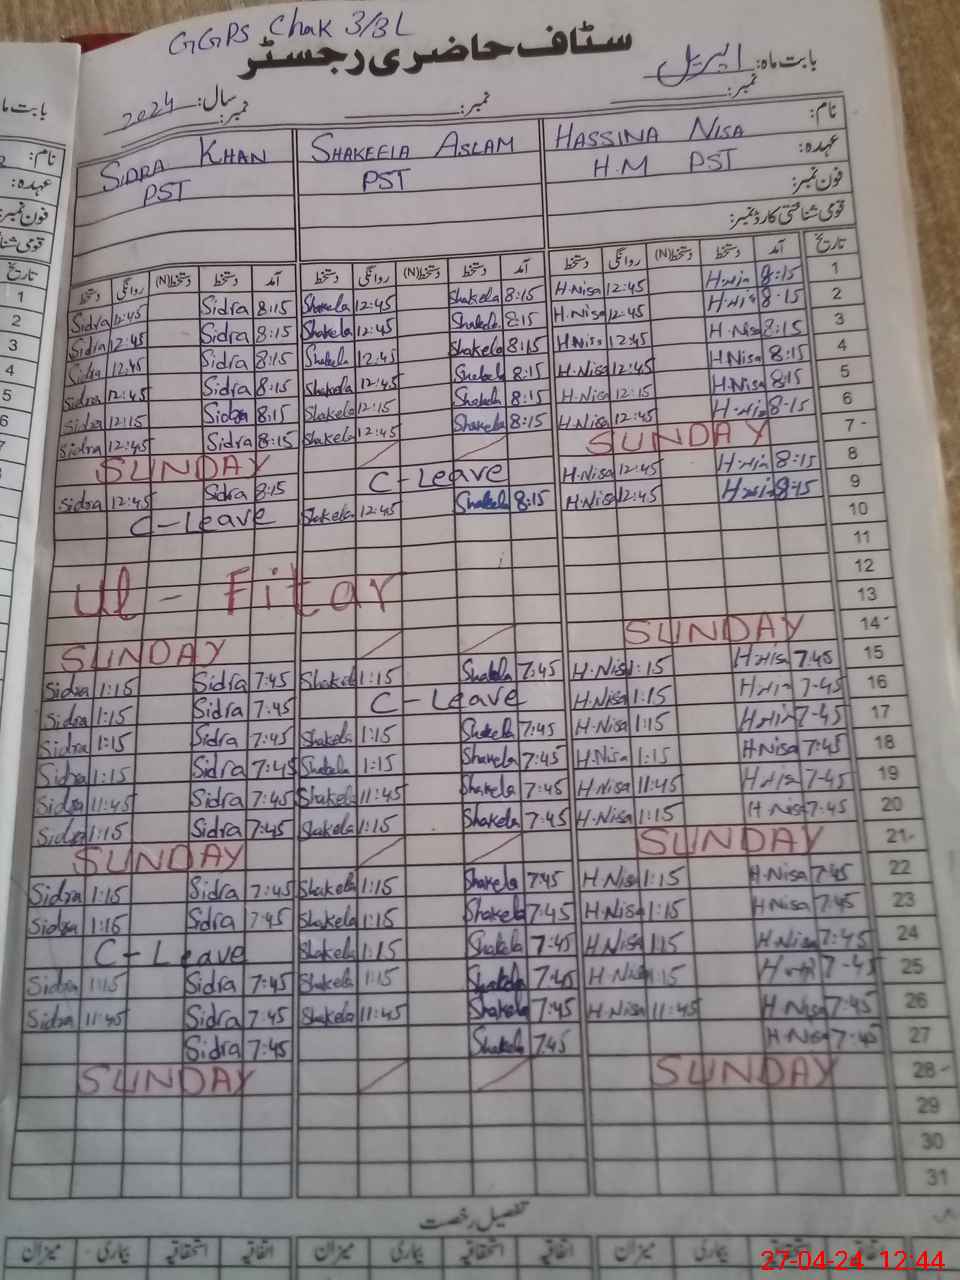 GGPS Chak 3/3L
سٹاف حاضری رجسٹر
بابت ماہ: اپریل
سال: 2024
نمبر: نمبر: نمبر:
نام: HASSINA NISA SHAKEELA ASLAM SIDRA KHAN
عہدہ: H.M PST PST PST
فون نمبر:
قومی شناختی کارڈ نمبر:
تاریخ آمد دستخط دستخط(N) روانگی دستخط آمد دستخط دستخط(N) روانگی دستخط آمد دستخط دستخط(N) روانگی دستخط
Sidra 12:45 Sidra 8:15 Shakela 12:45 Shakela 8:15 H.Nisa 12:45 H.Nisa 8:15 1
Sidra 12:45 Sidra 8:15 Shakela 12:45 Shakela 8:15 H.Nisa 12:45 H.Nisa 8-15 2
Sidra 12:45 Sidra 8:15 Shakela 12:45 Shakela 8:15 H.Nisa 12:45 H.Nisa 8:15 3
Sidra 12:45 Sidra 8:15 Shakela 12:45 Shakela 8:15 H.Nisa 12:45 H.Nisa 8:15 4
Sidra 12:15 Sidra 8:15 Shakela 12:15 Shakela 8:15 H.Nisa 12:15 H.Nisa 8:15 5
Sidra 12:45 Sidra 8:15 Shakela 12:45 Shakela 8:15 H.Nisa 12:45 H.Nisa 8-15 6
SUNDAY SUNDAY 7
Sidra 12:45 Sidra 8:15 C-Leave H.Nisa 12:45 H.Nisa 8:15 8
C-Leave Shakela 12:45 Shakela 8:15 H.Nisa 12:45 H.Nisa 8-15 9
10
11
12
Ul - Fitar 13
SUNDAY SUNDAY 14
Sidra 1:15 Sidra 7:45 Shakela 1:15 Shakela 7:45 H.Nisa 1:15 H.Nisa 7:45 15
Sidra 1:15 Sidra 7:45 C-Leave H.Nisa 1:15 H.Nisa 7-45 16
Sidra 1:15 Sidra 7:45 Shakela 1:15 Shakela 7:45 H.Nisa 1:15 H.Nisa 7-45 17
Sidra 1:15 Sidra 7:45 Shakela 1:15 Shakela 7:45 H.Nisa 1:15 H.Nisa 7:45 18
Sidra 11:45 Sidra 7:45 Shakela 11:45 Shakela 7:45 H.Nisa 11:45 H.Nisa 7-45 19
Sidra 1:15 Sidra 7:45 Shakela 1:15 Shakela 7:45 H.Nisa 1:15 H.Nisa 7:45 20
SUNDAY SUNDAY 21
Sidra 1:15 Sidra 7:45 Shakela 1:15 Shakela 7:45 H.Nisa 1:15 H.Nisa 7:45 22
Sidra 1:15 Sidra 7:45 Shakela 1:15 Shakela 7:45 H.Nisa 1:15 H.Nisa 7:45 23
C-Leave Shakela 1:15 Shakela 7:45 H.Nisa 1:15 H.Nisa 7:45 24
Sidra 1:15 Sidra 7:45 Shakela 1:15 Shakela 7:45 H.Nisa 1:15 H.Nisa 7-45 25
Sidra 11:45 Sidra 7:45 Shakela 11:45 Shakela 7:45 H.Nisa 11:45 H.Nisa 7:45 26
Sidra 7:45 Shakela 7:45 H.Nisa 7:45 27
SUNDAY SUNDAY 28
29
30
31
تفصیل رخصت
اتفاقیہ استحقاقیہ بیماری میزان اتفاقیہ استحقاقیہ بیماری میزان اتفاقیہ استحقاقیہ بیماری میزان
27-04-24 12:44